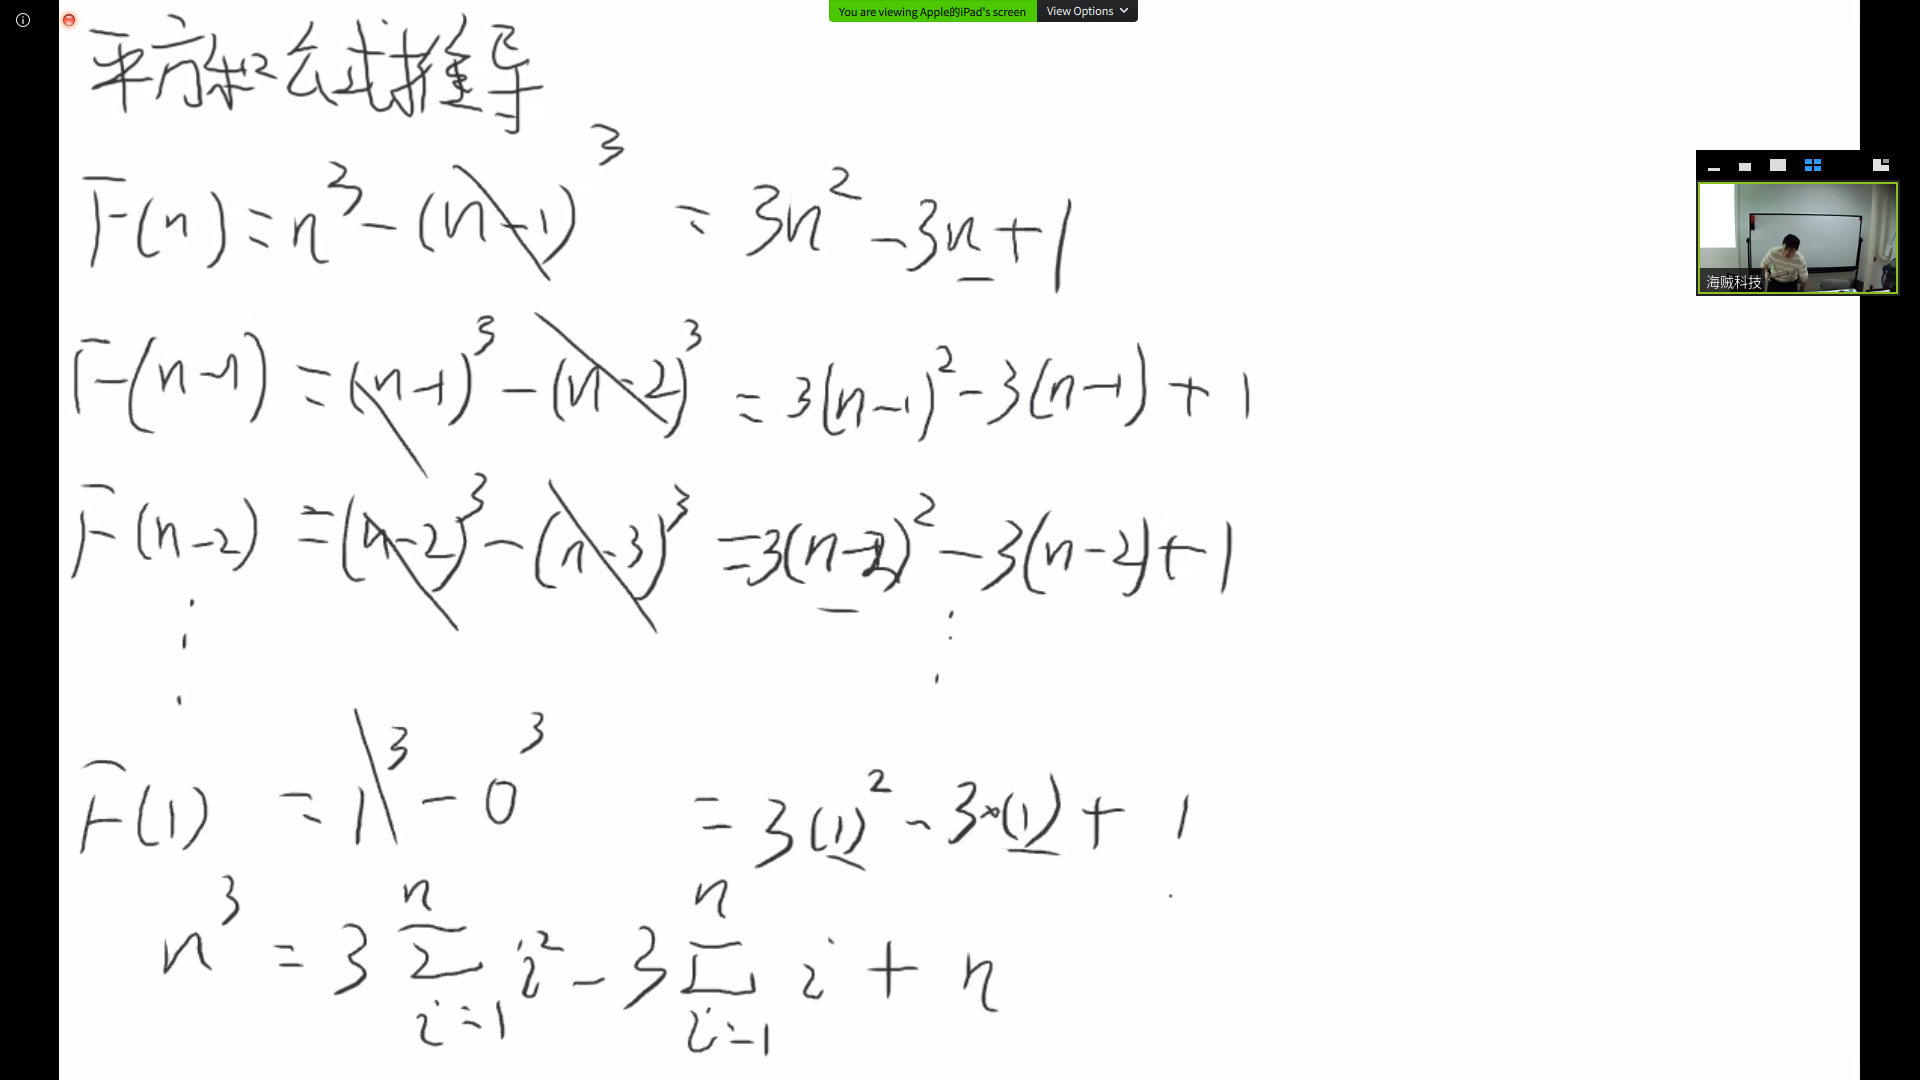 You are viewing Apple的iPad's screen View Options
平方和公式推导
F(n) = n³ - (n-1)³ = 3n² - 3n + 1
F(n-1) = (n-1)³ - (n-2)³ = 3(n-1)² - 3(n-1) + 1
F(n-2) = (n-2)³ - (n-3)³ = 3(n-2)² - 3(n-2) + 1
⋮ ⋮
F(1) = 1³ - 0³ = 3(1)² - 3×(1) + 1
n³ = 3 ∑_{i=1}^{n} i² - 3 ∑_{i=1}^{n} i + n
海贼科技